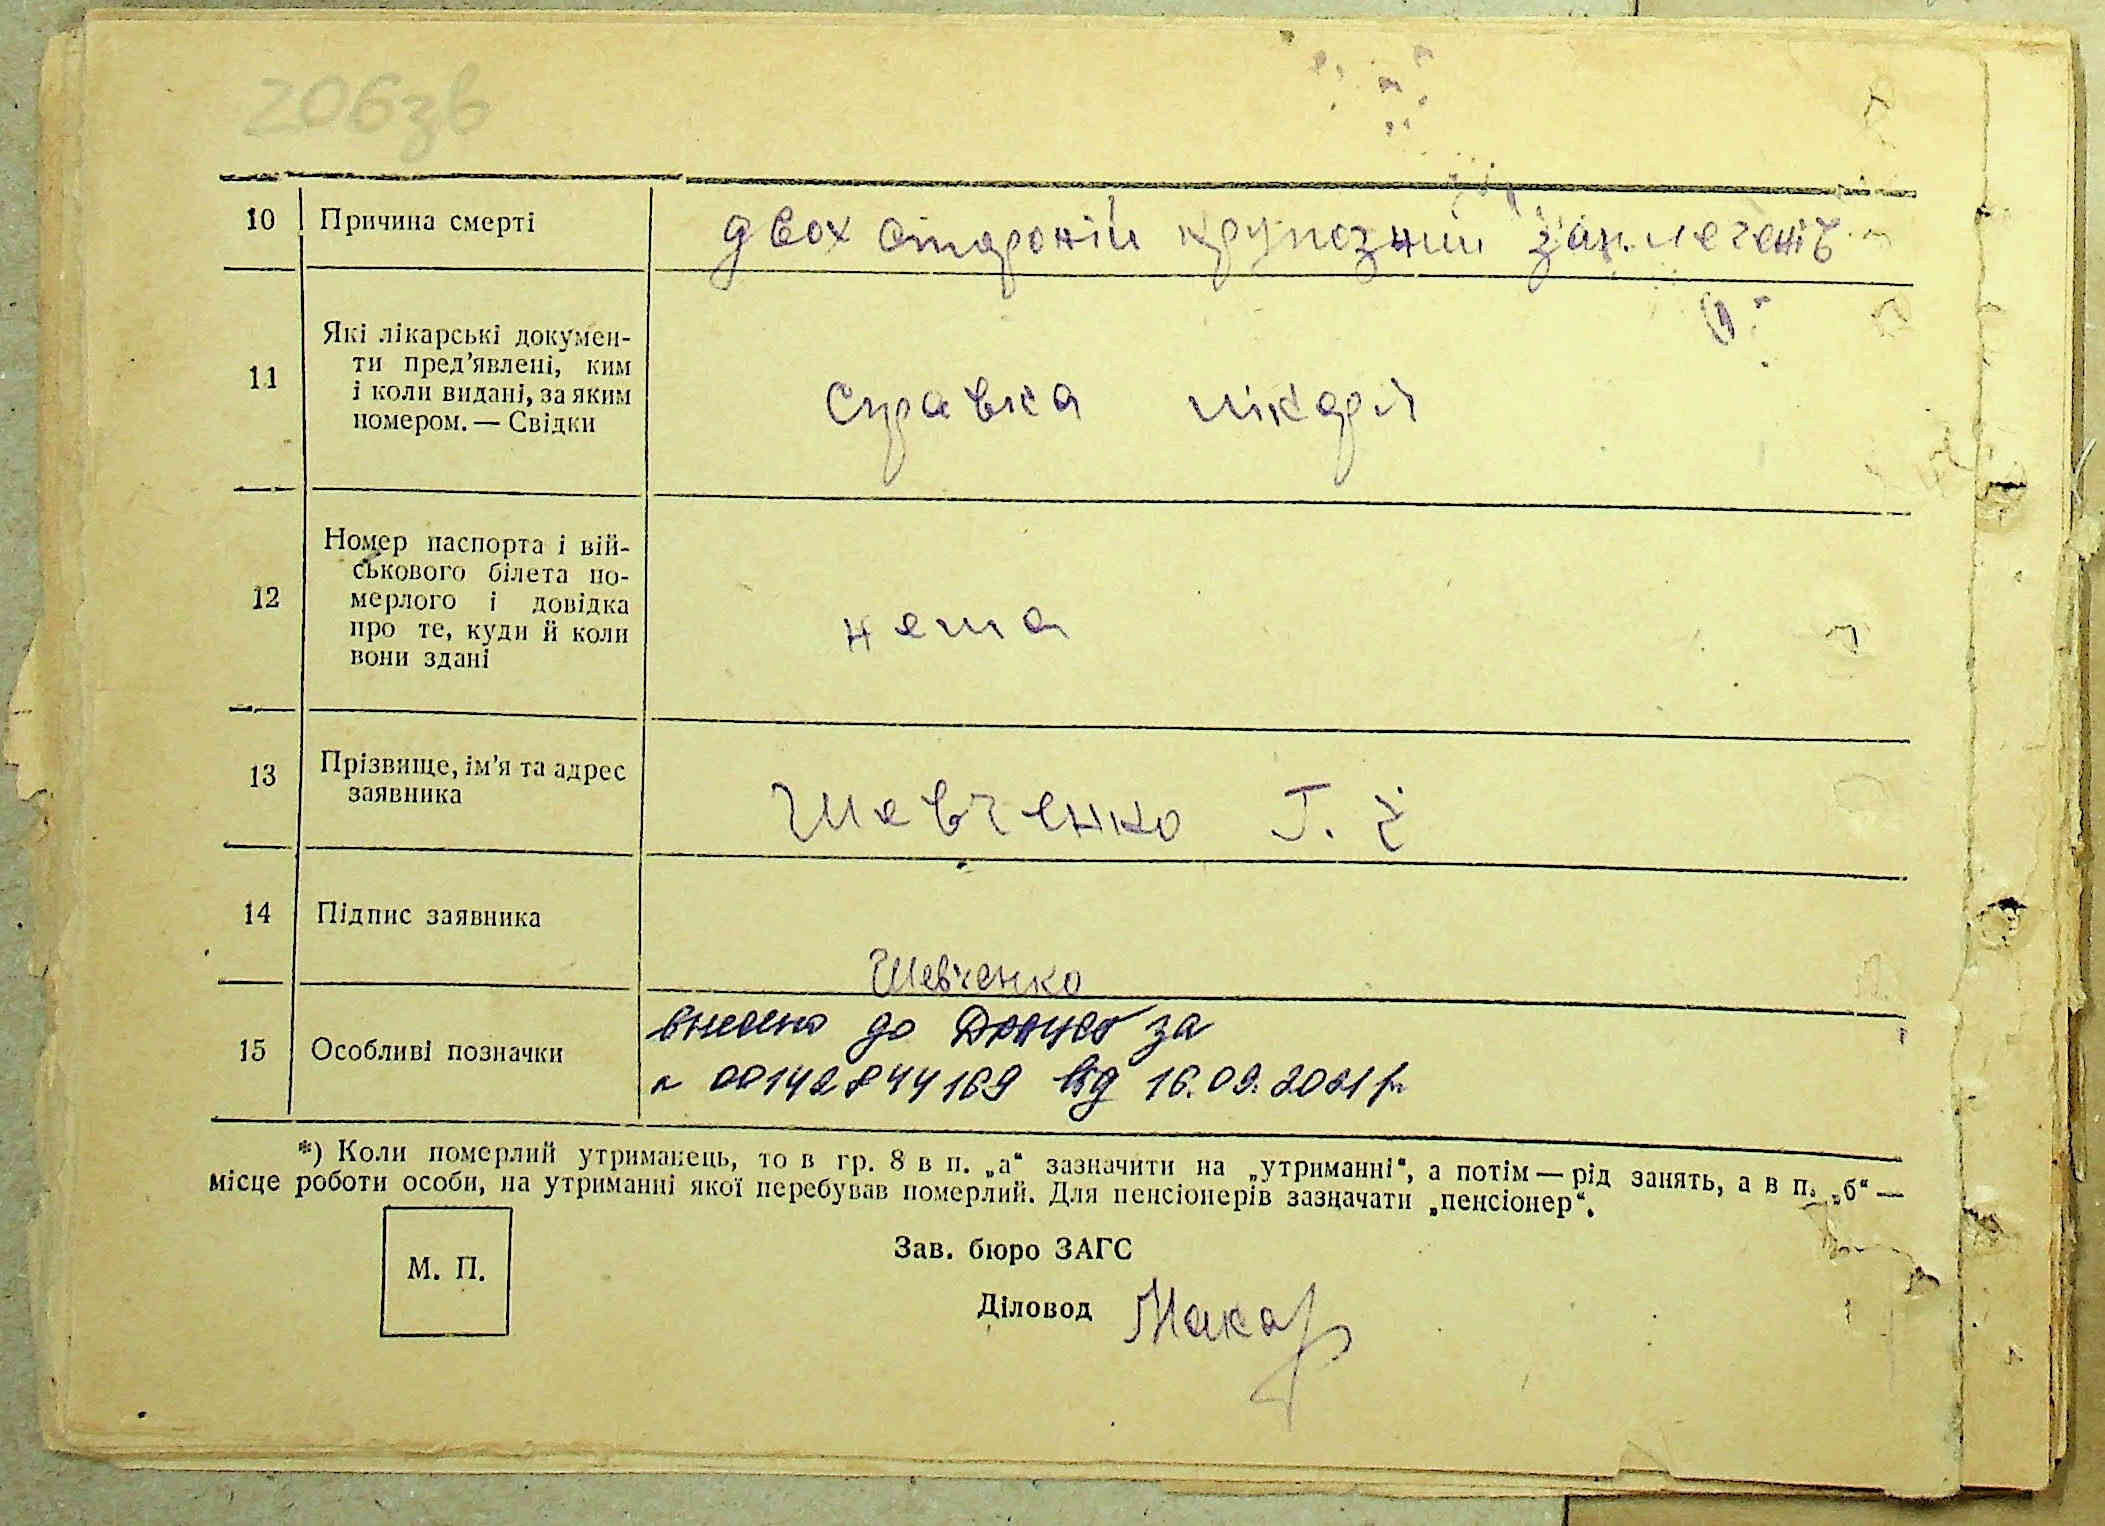 206зв
10 Причина смерті двох стороній крупозний зап. легенів
11 Які лікарські докумен-
ти пред'явлені, ким
і коли видані, за яким
номером. — Свідки
справка лікаря
12 Номер паспорта і вій-
ськового білета по-
мерлого і довідка
про те, куди й коли
вони здані
нема
13 Прізвище, ім'я та адрес
заявника
Шевченко Г.
14 Підпис заявника
Шевченко
15 Особливі позначки
внесено до ДРАЦСГ за
00142844169 від 16.09.2021 р.
*) Коли померлий утриманець, то в гр. 8 в п. „а“ зазначити на „утриманні“, а потім — рід занять, а в п. „б“ —
місце роботи особи, на утриманні якої перебував померлий. Для пенсіонерів зазначати „пенсіонер“.
М. П.
Зав. бюро ЗАГС
Діловод Макар